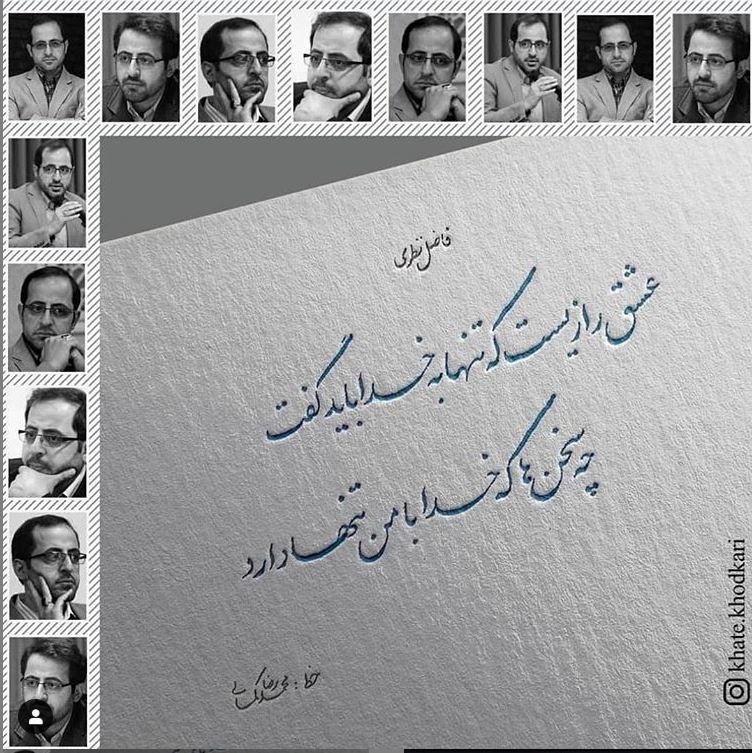 فاضل نظری
عشق رازیست که تنها به خدا باید گفت
چه سخن ها که خدا با من تنها دارد
خط: محمدرضا
khate.khodkari